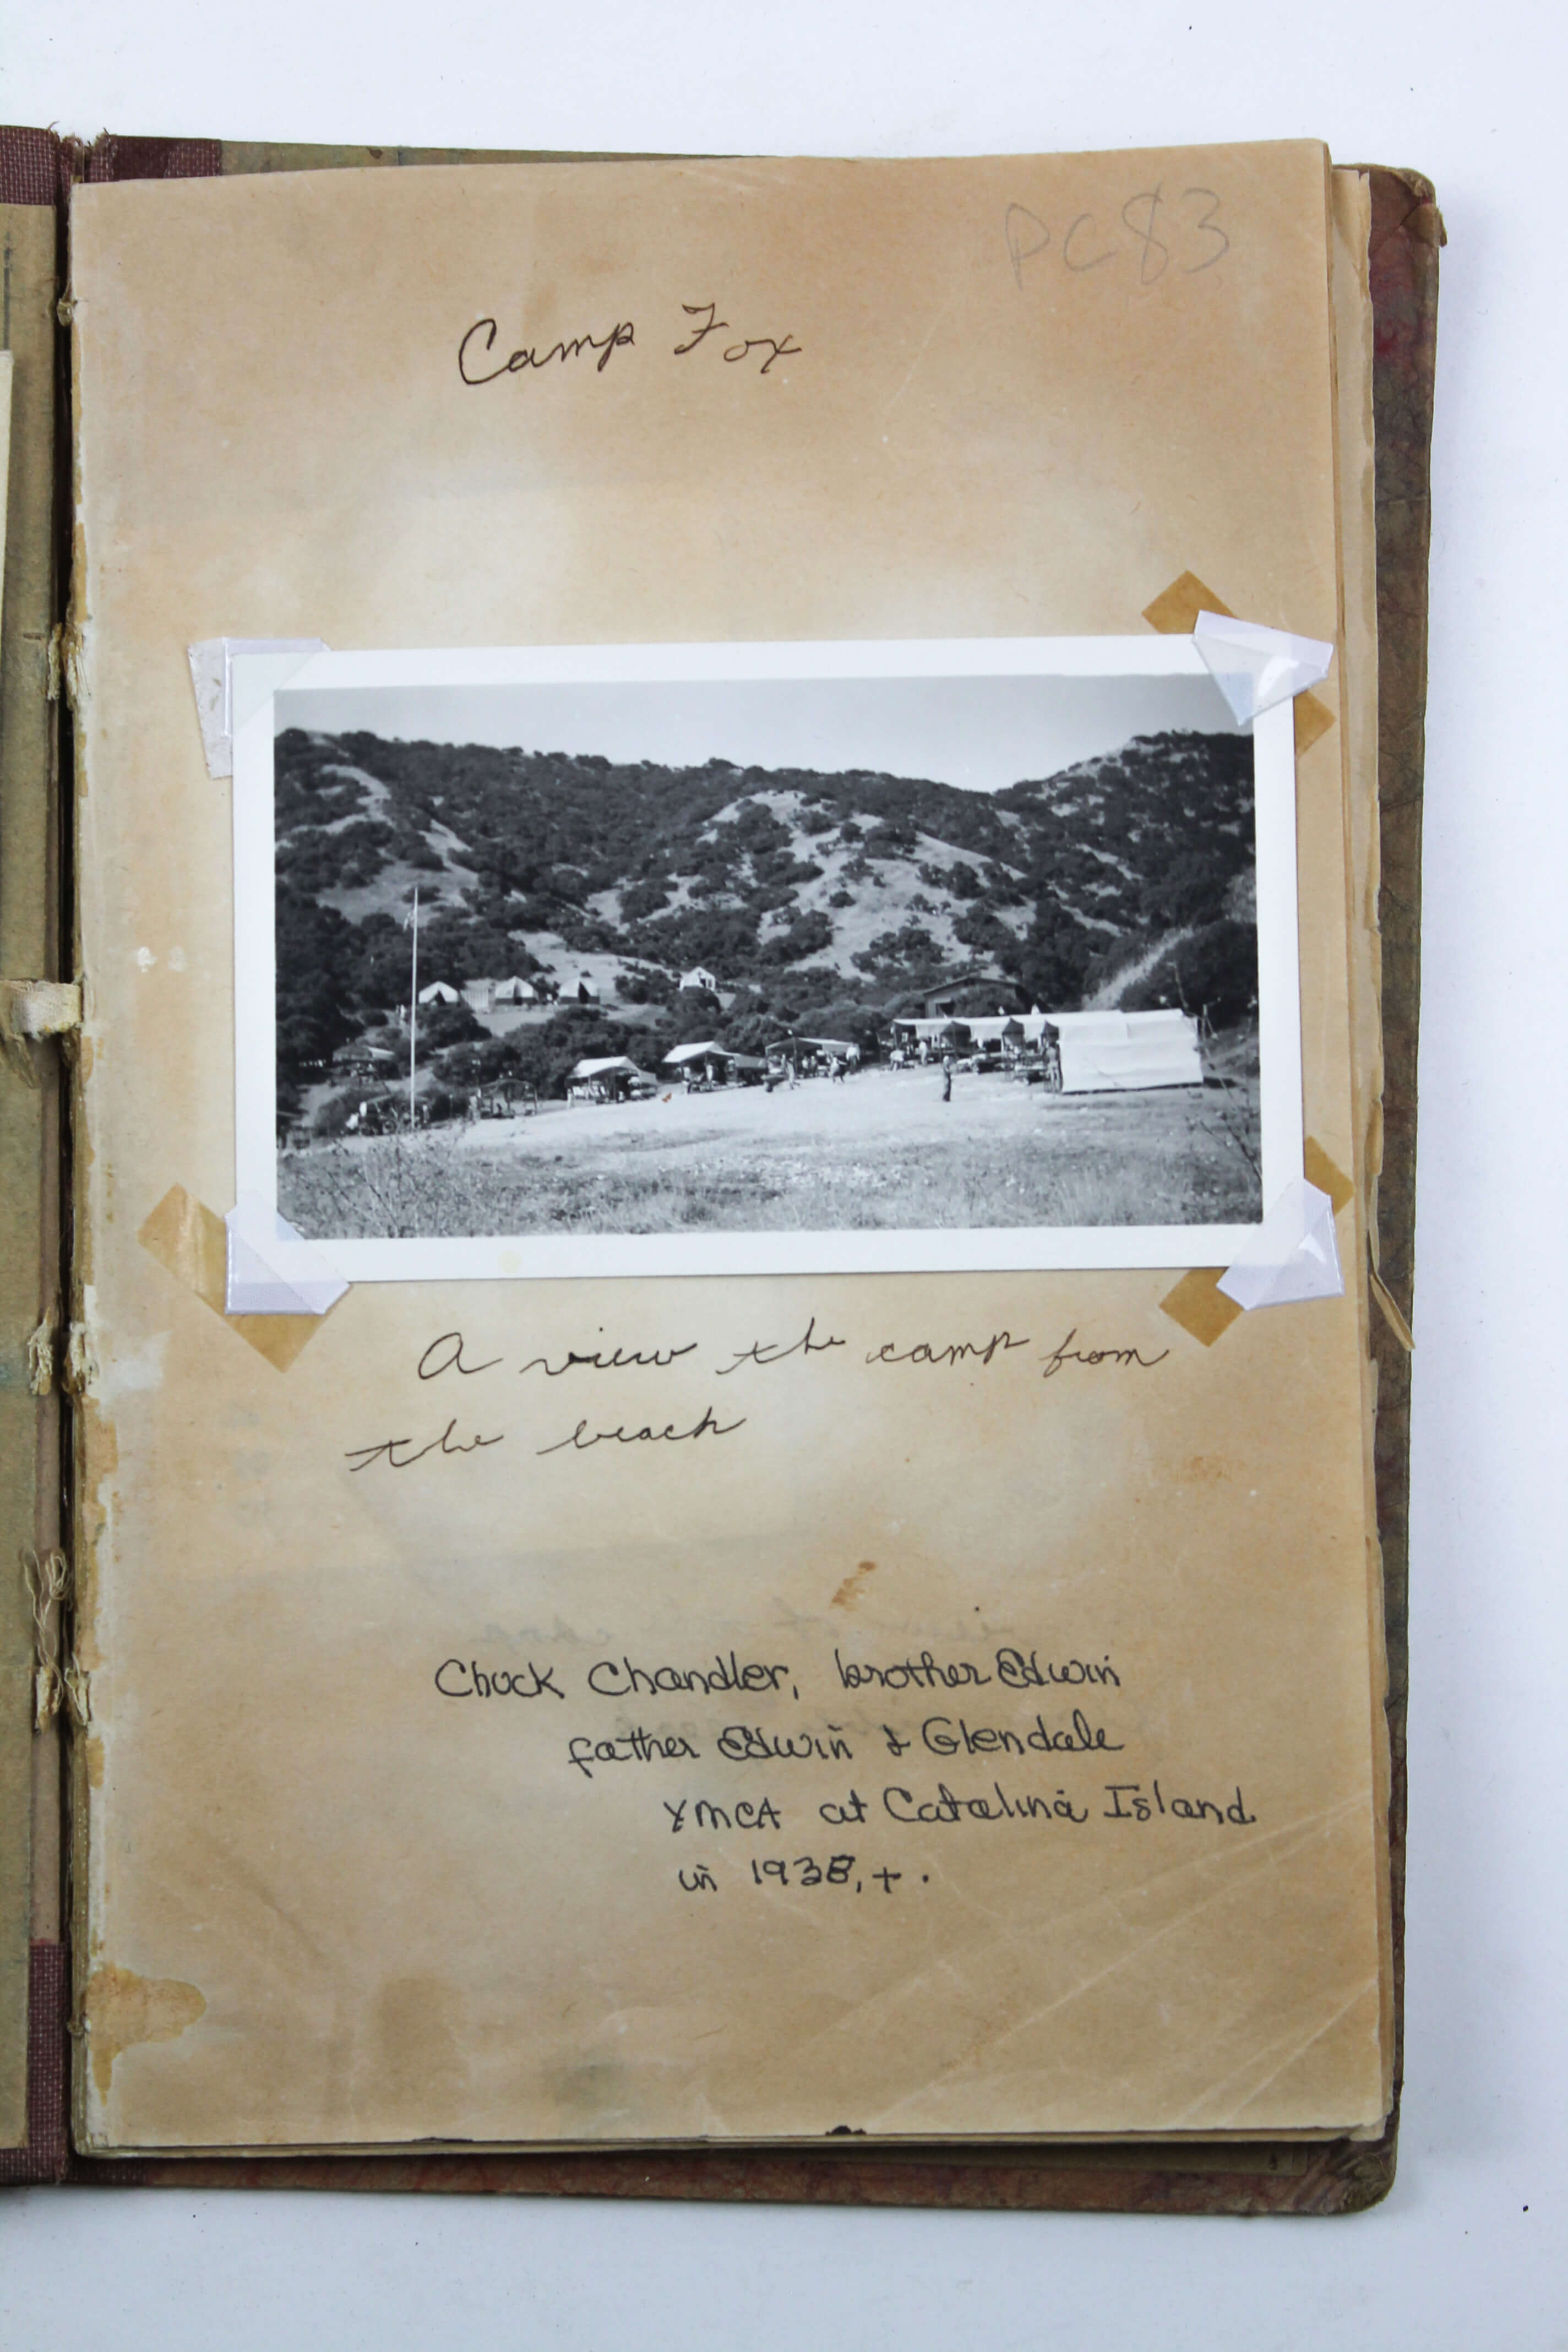 PC83
Camp Fox
A view the camp from
the beach
Chuck Chandler, brother Edwin
father Edwin & Glendale
YMCA at Catalina Island
in 1938, + .